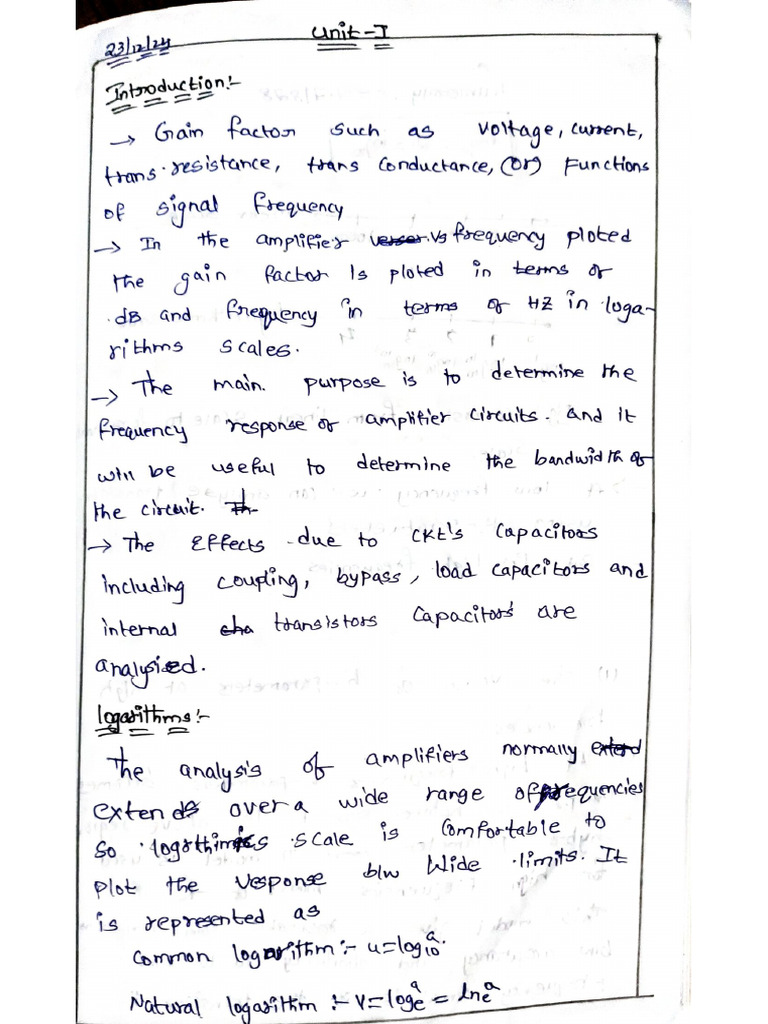 Unit-I
23/12/24
Introduction:-
→ Gain factor such as voltage, current,
trans-resistance, trans conductance, (or) Functions
of signal frequency
→ In the amplifier verser vs frequency ploted
the gain factor is ploted in terms of
dB and frequency in terms of HZ in loga-
rithms scales.
→ The main purpose is to determine the
frequency response of amplifier circuits. and it
will be useful to determine the bandwidth of
the circuit. Th
→ The Effects due to CKt's Capacitors
including coupling, bypass, load capacitors and
internal cha transistors Capacitors are
analysied.
logarithms:-
The analysis of amplifiers normally extend
extends over a wide range of frequencies
so logrthimics scale is comfortable to
plot the response b/w Wide limits. It
is represented as
Common logarithm :- u = log₁₀ᵃ.
Natural logarithm :- v = logₑᵃ = lnₑᵃ